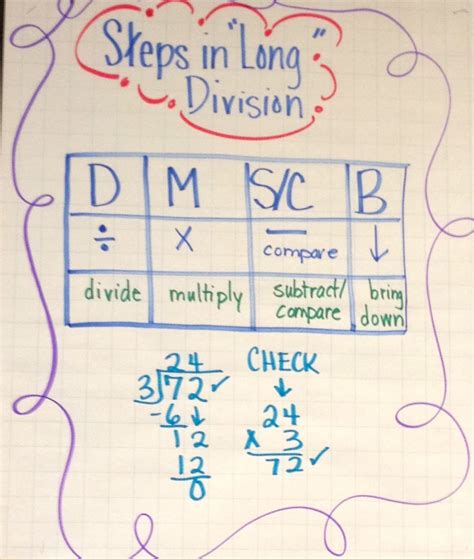 Steps in "Long"
Division
D M S/C B
÷ × — compare ↓
divide multiply subtract/ compare bring down
24 CHECK
3)72✓ ↓
-6↓ 24
12 x 3
12 72✓
0